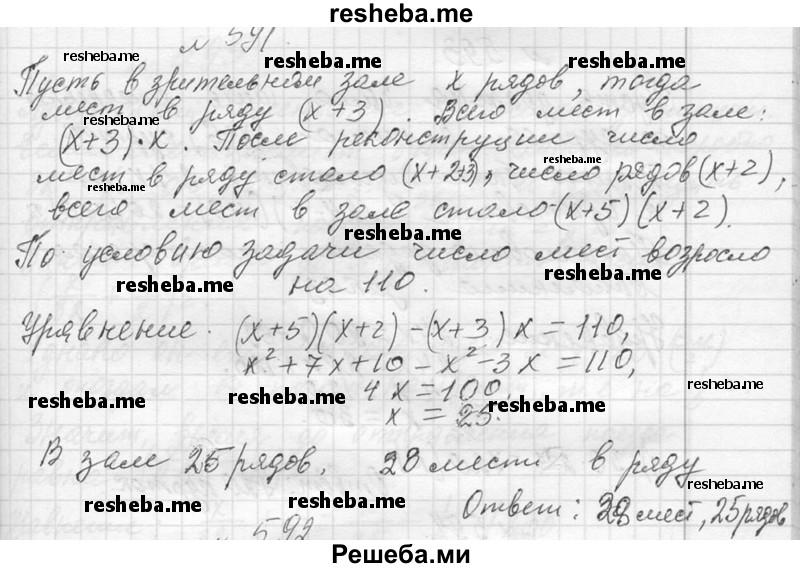 resheba.me
№ 591.
resheba.me resheba.me
Пусть в зрительном зале x рядов, тогда
мест в ряду (x+3). Всего мест в зале:
resheba.me resheba.me
(x+3)·x. После реконструции число
resheba.me
мест в ряду стало (x+2+3), число рядов (x+2),
resheba.me
всего мест в зале стало (x+5)(x+2).
resheba.me
По условию задачи число мест возросло
resheba.me resheba.me
на 110.
Уравнение. (x+5)(x+2)-(x+3)x=110,
x²+7x+10-x²-3x=110,
resheba.me
4x=100,
resheba.me resheba.me
x=25.
В зале 25 рядов, 28 мест в ряду
resheba.me
resheba.me resheba.me
Ответ: 28 мест, 25 рядов
№ 592
Решеба.ми